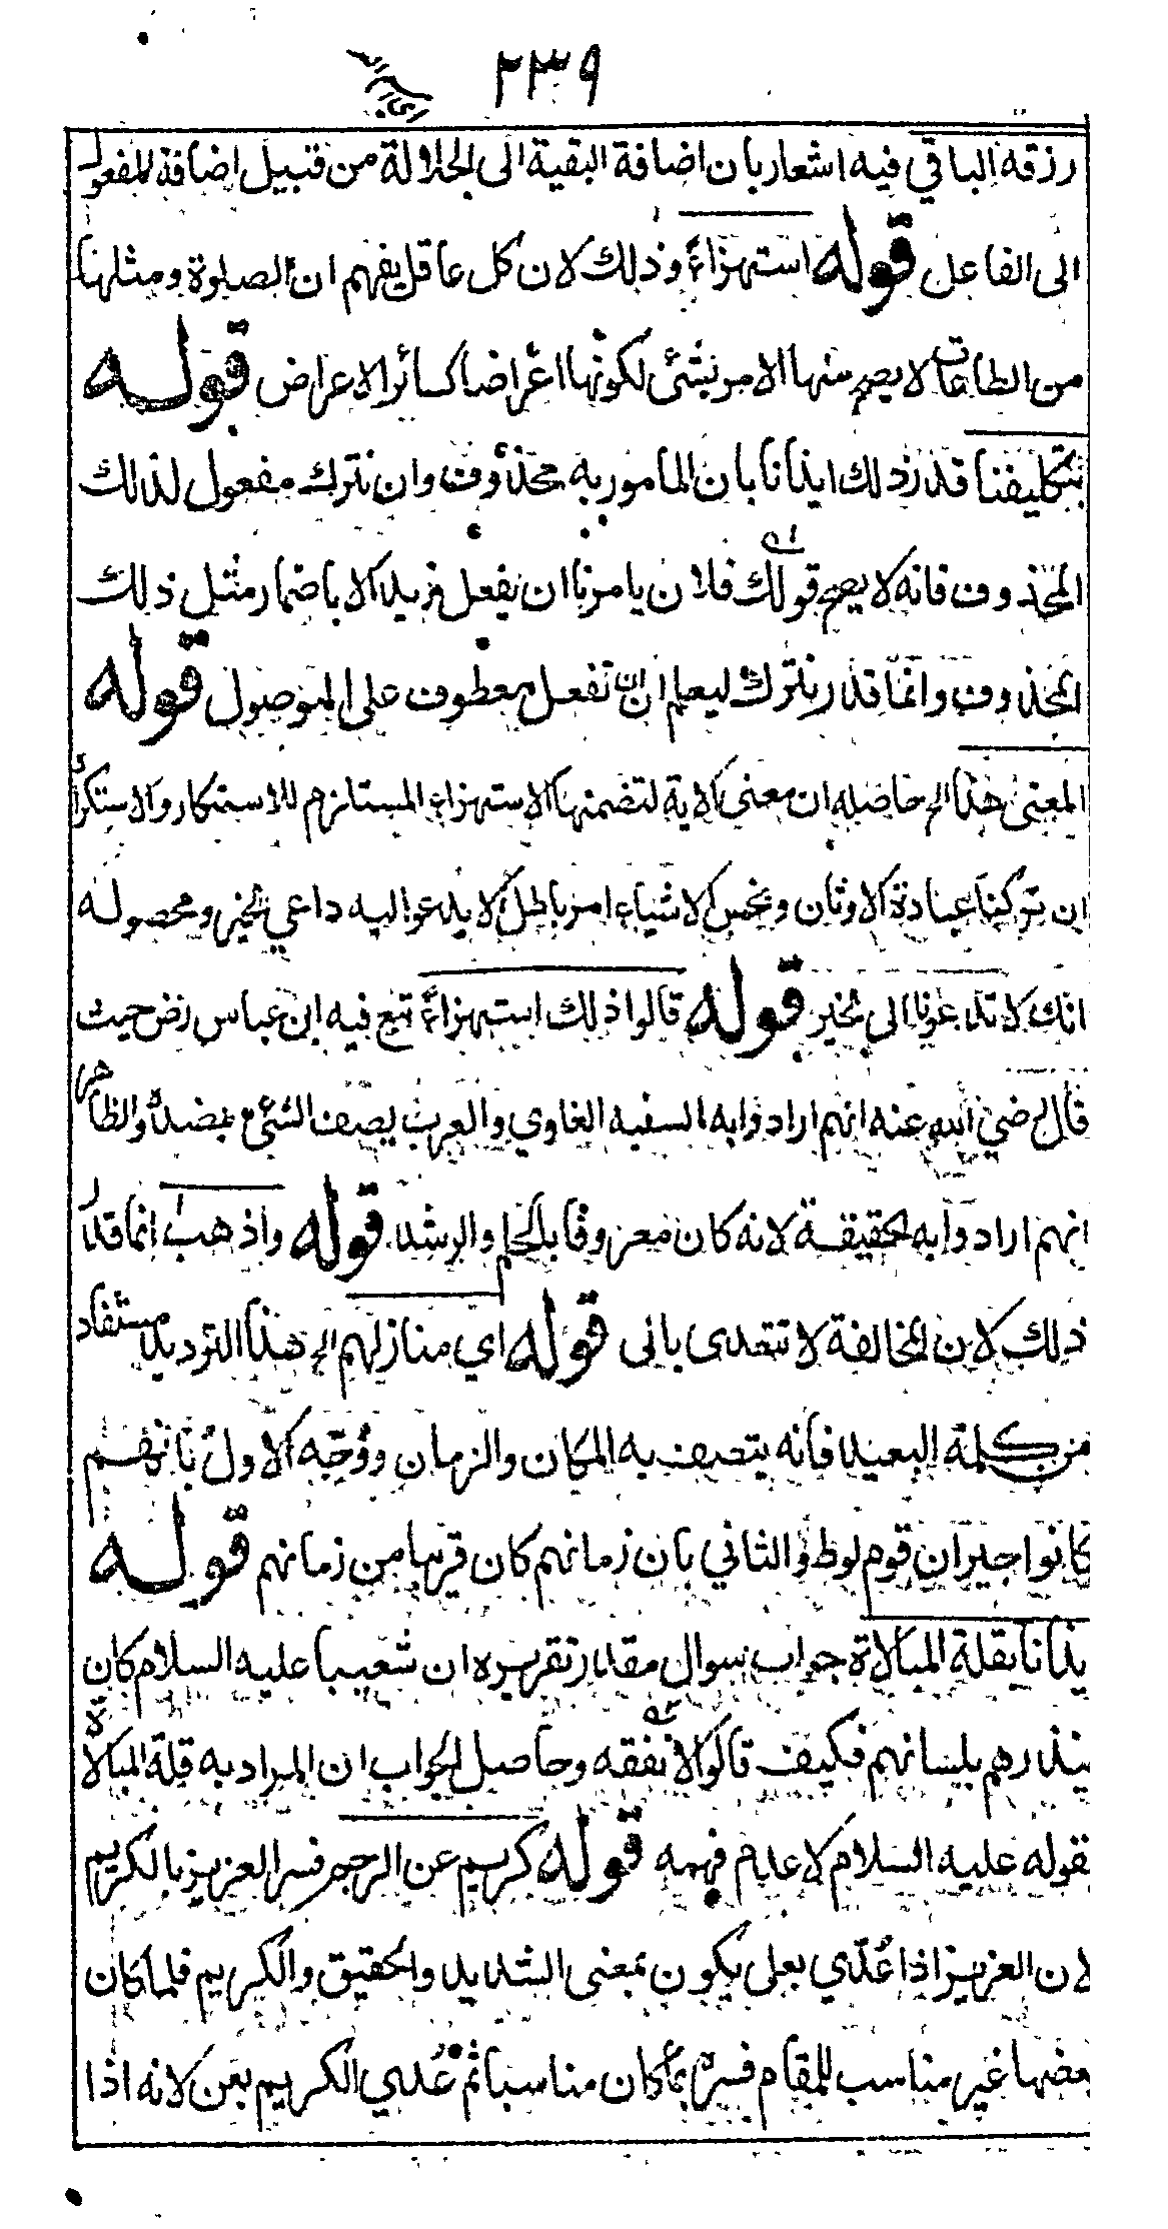 ٢٣٩
رزقه الباقي فيه اشعار بان اضافة البقية الى الجلالة من قبيل اضافة المفعول
الى الفاعل قوله استهزاء وذلك لان كل عاقل يفهم ان الصلوة ومثلها
من الطاعات لا يصح منها الامر بشئ لكونها اعراضا كسائر الاعراض قوله
بتكليفنا قدر ذلك ايذانا بان المامور به محذوف وان نترك مفعول لذلك
المحذوف فانه لا يصح قولك فلان يامرنا ان يفعل زيد الا باضمار مثل ذلك
المحذوف وانما قدر نترك ليعلم ان ان نفعل معطوف على الموصول قوله
المعنى هذا الخ حاصله ان معنى الاية لتضمنها الاستهزاء المستلزم للاستنكار والاستكراه
ان تركنا عبادة الاوثان وبخس الاشياء امر باطل لا يدعوا اليه داعي الخير ومحصوله
انك لا تدعونا الى الخير قوله قالوا ذلك استهزاء تبع فيه ابن عباس رض حيث
قال رضي الله عنه انهم ارادوا به السفيه الغاوي والعرب يصف الشئ بضده والظاهر
انهم ارادوا به الحقيقة لانه كان معروفا بالحلم والرشد قوله واذهب انما قدر
ذلك لان المخالفة لا تتعدى بالى قوله اي منازلهم الخ هذا الترديد مستفاد
من كلمة البعيد فانه يتصف به المكان والزمان ووجه الاول بانهم
كانوا جيران قوم لوط والثاني بان زمانهم كان قريبا من زمانهم قوله
يذانا بقلة المبالاة جواب سوال مقدر تقريره ان شعيبا عليه السلام كان
ينذرهم بلسانهم فكيف قالوا لا نفقه وحاصل الجواب ان المراد به قلة المبالاة
بقوله عليه السلام لا عدم فهمه قوله كريم عن الرجم فسر العزيز بالكريم
لان العزيز اذا عدي بعلى يكون بمعنى الشديد والحقيق والكريم فلما كان
بعضها غير مناسب للمقام فسره بما كان مناسبا ثم عدي الكريم بعن لانه اذا